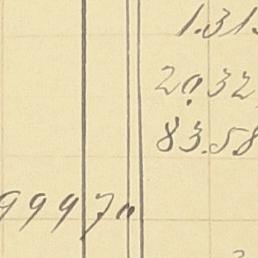 1.313
20.32
83.58
99970